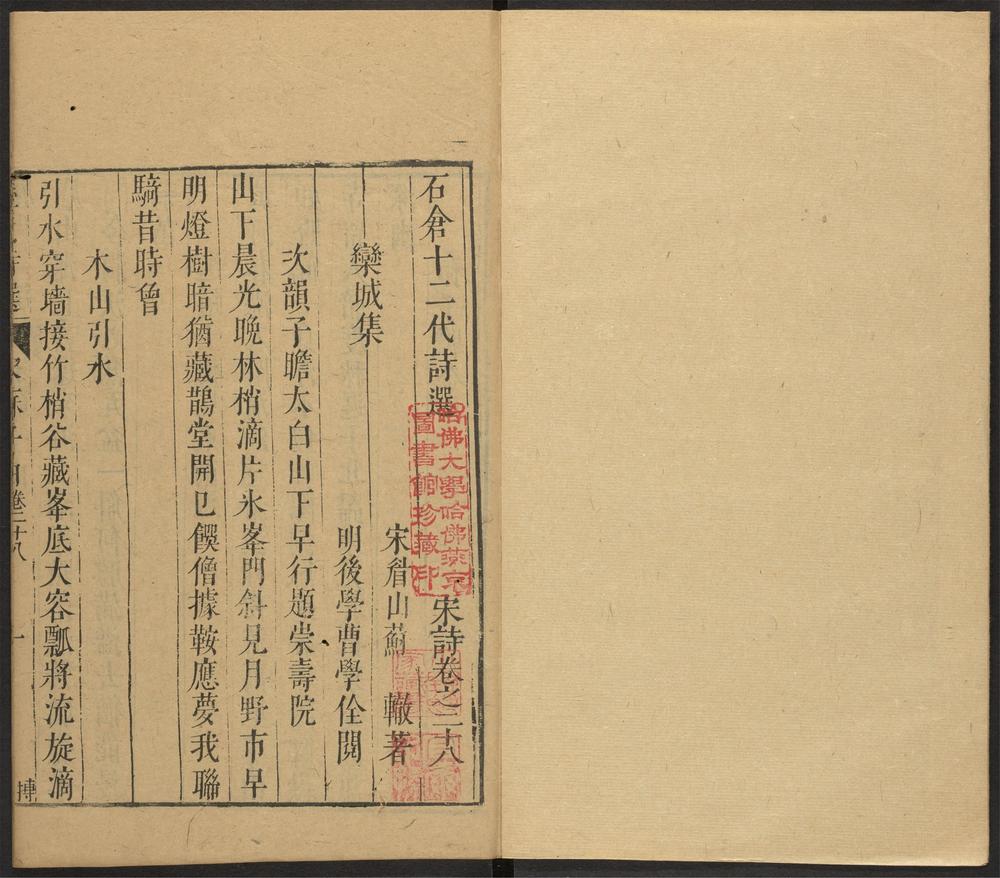 石倉十二代詩選 宋詩卷之二十八
宋眉山蘇 轍著
欒城集 明後學曹學佺閱
次韻子瞻太白山下早行題崇壽院
山下晨光晚林梢滴片氷峯門斜見月野市早
明燈樹暗猶藏鵲堂開巳饌僧據鞍應夢我聯
騎昔時曾
木山引水
引水穿墻接竹梢谷藏峯底大容瓢將流旋滴
卷二十八 一
哈佛大學哈佛燕京
圖書館珍藏印